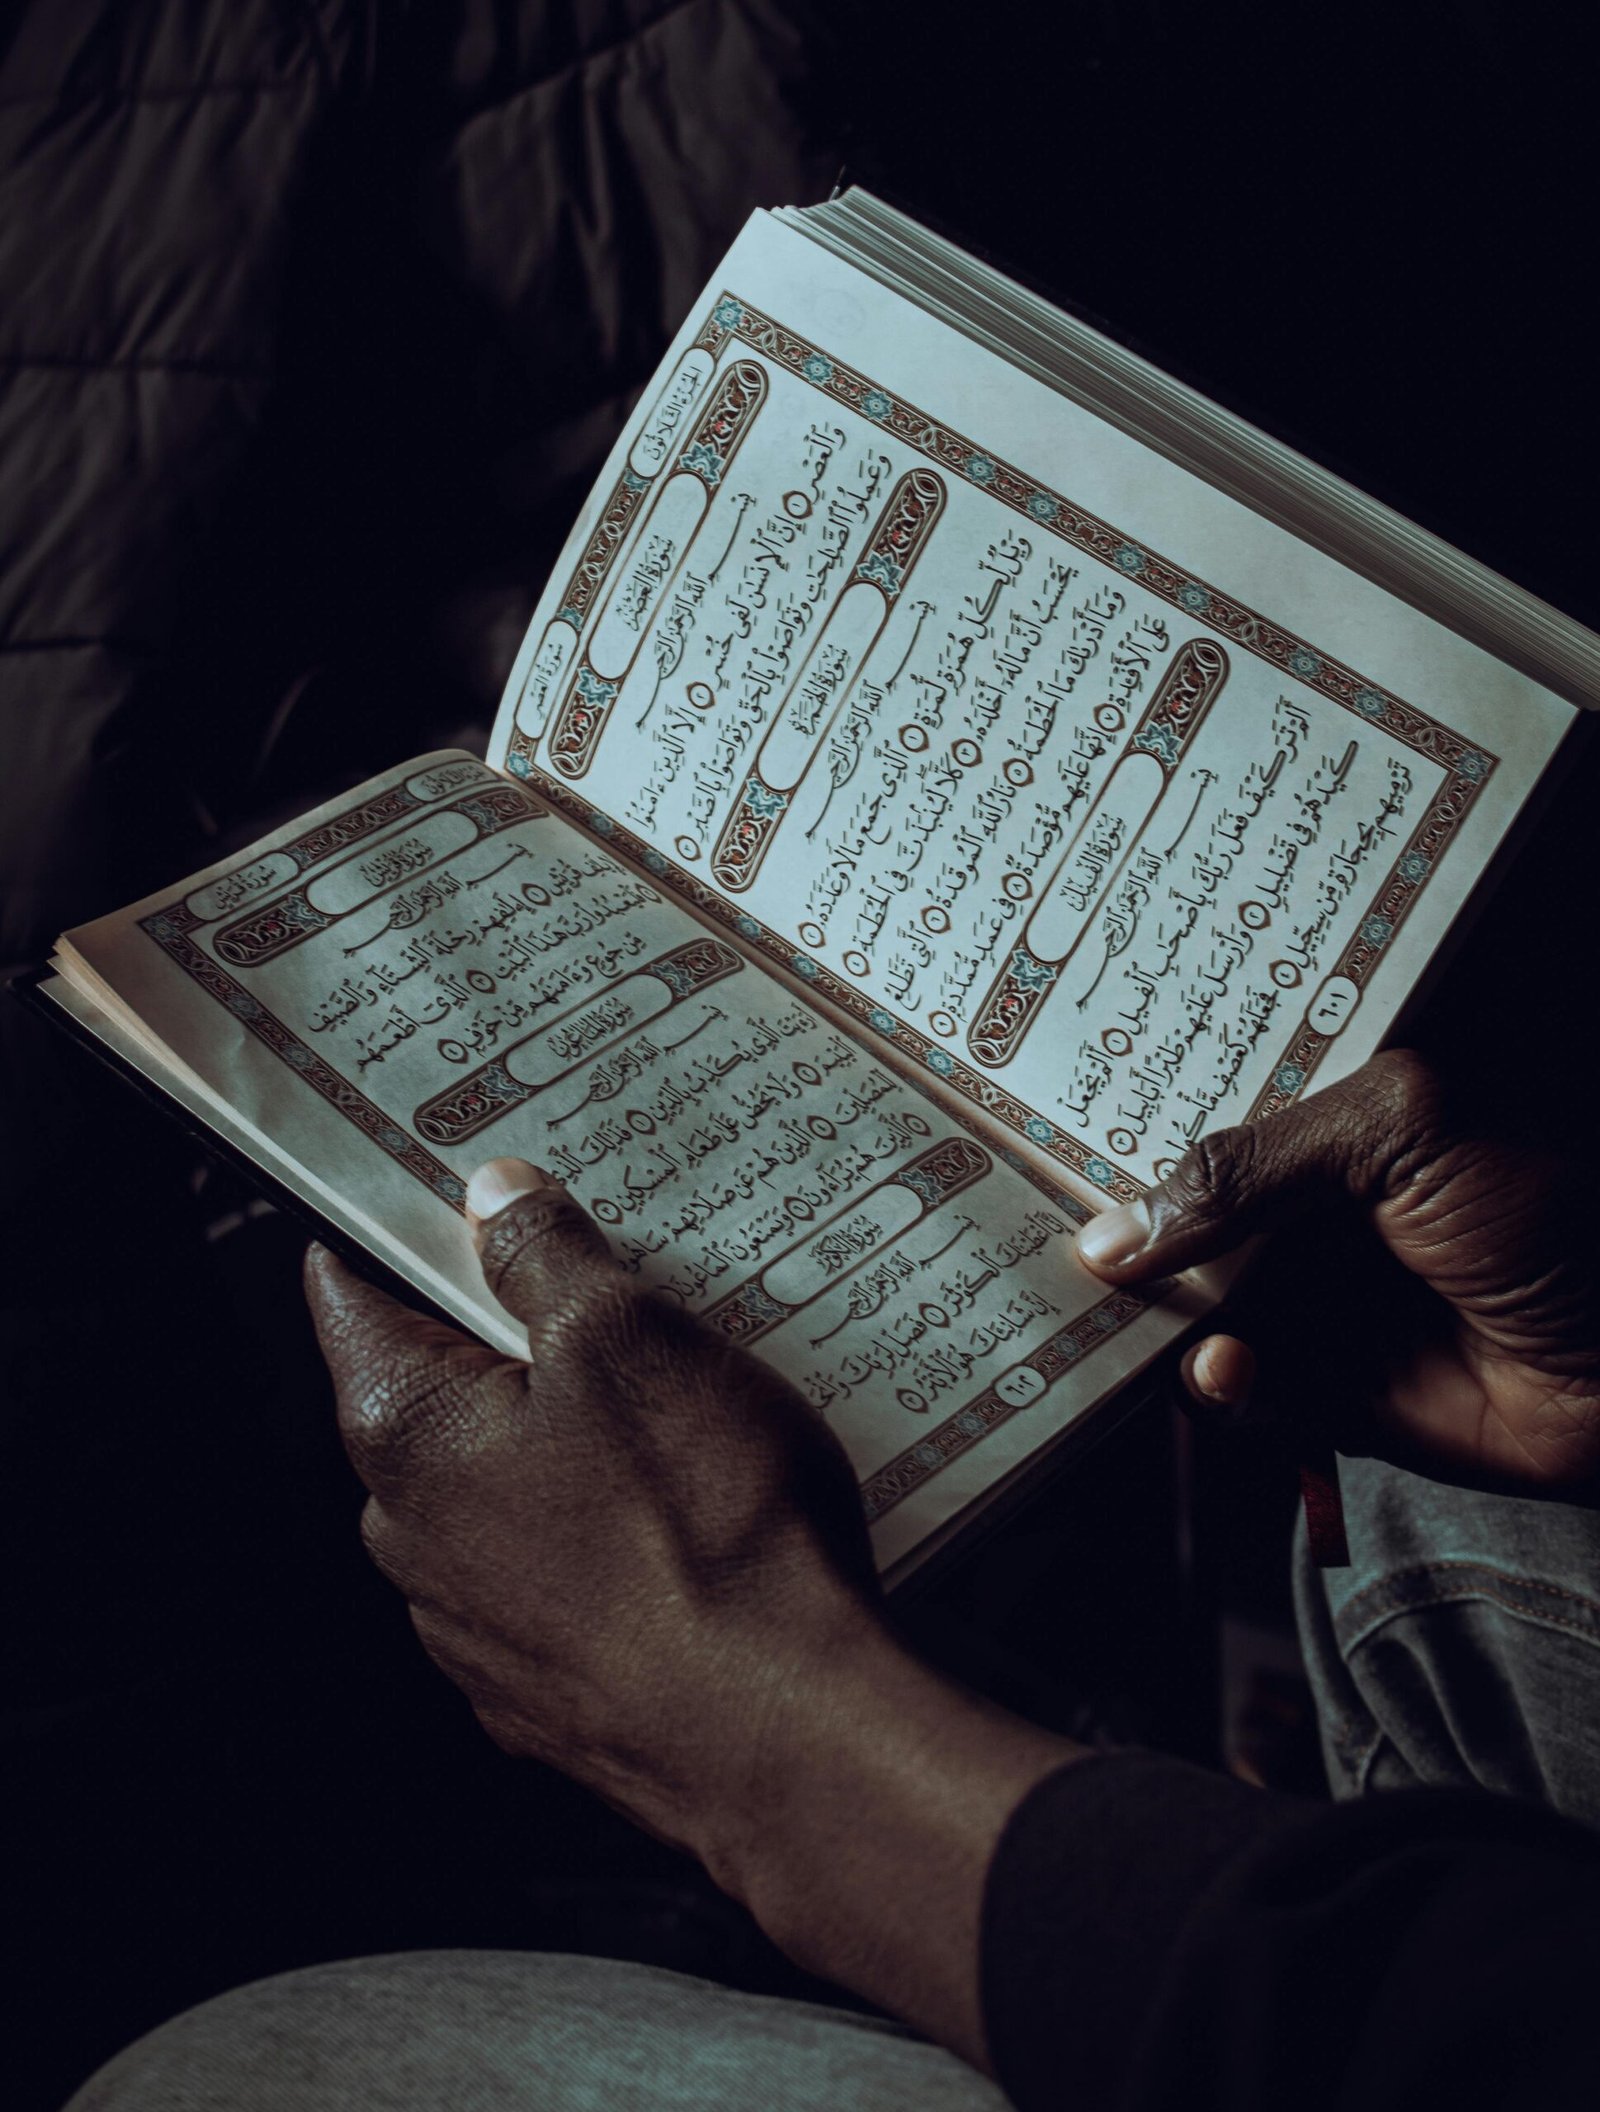 سُورَةُ العَصۡرِ
الجُزۡءُ الثَّلَاثُونَ
سُورَةُ العَصۡرِ
بِسۡمِ ٱللَّهِ ٱلرَّحۡمَٰنِ ٱلرَّحِيمِ
وَٱلۡعَصۡرِ ١ إِنَّ ٱلۡإِنسَٰنَ لَفِي خُسۡرٍ ٢ إِلَّا ٱلَّذِينَ ءَامَنُواْ
وَعَمِلُواْ ٱلصَّٰلِحَٰتِ وَتَوَاصَوۡاْ بِٱلۡحَقِّ وَتَوَاصَوۡاْ بِٱلصَّبۡرِ ٣
سُورَةُ الهُمَزَةِ
بِسۡمِ ٱللَّهِ ٱلرَّحۡمَٰنِ ٱلرَّحِيمِ
وَيۡلٞ لِّكُلِّ هُمَزَةٖ لُّمَزَةٍ ١ ٱلَّذِي جَمَعَ مَالٗا وَعَدَّدَهُۥ ٢
يَحۡسَبُ أَنَّ مَالَهُۥٓ أَخۡلَدَهُۥ ٣ كَلَّاۖ لَيُنۢبَذَنَّ فِي ٱلۡحُطَمَةِ ٤
وَمَآ أَدۡرَىٰكَ مَا ٱلۡحُطَمَةُ ٥ نَارُ ٱللَّهِ ٱلۡمُوقَدَةُ ٦ ٱلَّتِي تَطَّلِعُ
عَلَى ٱلۡأَفۡـِٔدَةِ ٧ إِنَّهَا عَلَيۡهِم مُّؤۡصَدَةٞ ٨ فِي عَمَدٖ مُّمَدَّدَةِۭ ٩
سُورَةُ الفِيلِ
بِسۡمِ ٱللَّهِ ٱلرَّحۡمَٰنِ ٱلرَّحِيمِ
أَلَمۡ تَرَ كَيۡفَ فَعَلَ رَبُّكَ بِأَصۡحَٰبِ ٱلۡفِيلِ ١ أَلَمۡ يَجۡعَلۡ
كَيۡدَهُمۡ فِي تَضۡلِيلٖ ٢ وَأَرۡسَلَ عَلَيۡهِمۡ طَيۡرًا أَبَابِيلَ ٣
تَرۡمِيهِم بِحِجَارَةٖ مِّن سِجِّيلٖ ٤ فَجَعَلَهُمۡ كَعَصۡفٖ مَّأۡكُولِۭ
٦٠١
سُورَةُ قُرَيۡشٍ
الجُزۡءُ الثَّلَاثُونَ
سُورَةُ قُرَيۡشٍ
بِسۡمِ ٱللَّهِ ٱلرَّحۡمَٰنِ ٱلرَّحِيمِ
لِإِيلَٰفِ قُرَيۡشٍ ١ إِۦلَٰفِهِمۡ رِحۡلَةَ ٱلشِّتَآءِ وَٱلصَّيۡفِ
٢ فَلۡيَعۡبُدُواْ رَبَّ هَٰذَا ٱلۡبَيۡتِ ٣ ٱلَّذِيٓ أَطۡعَمَهُم
مِّن جُوعٖ وَءَامَنَهُم مِّنۡ خَوۡفِۭ ٤
سُورَةُ المَاعُونِ
بِسۡمِ ٱللَّهِ ٱلرَّحۡمَٰنِ ٱلرَّحِيمِ
أَرَءَيۡتَ ٱلَّذِي يُكَذِّبُ بِٱلدِّينِ ١ فَذَٰلِكَ ٱلَّذِي
ٱلۡيَتِيمَ ٢ وَلَا يَحُضُّ عَلَىٰ طَعَامِ ٱلۡمِسۡكِينِ ٣
لِّلۡمُصَلِّينَ ٤ ٱلَّذِينَ هُمۡ عَن صَلَاتِهِمۡ سَاهُونَ
٥ ٱلَّذِينَ هُمۡ يُرَآءُونَ ٦ وَيَمۡنَعُونَ ٱلۡمَاعُونَ
سُورَةُ الكَوۡثَرِ
بِسۡمِ ٱللَّهِ ٱلرَّحۡمَٰنِ ٱلرَّحِيمِ
إِنَّآ أَعۡطَيۡنَٰكَ ٱلۡكَوۡثَرَ ١ فَصَلِّ لِرَبِّكَ
إِنَّ شَانِئَكَ هُوَ ٱلۡأَبۡتَرُ ٣
٦٠٢